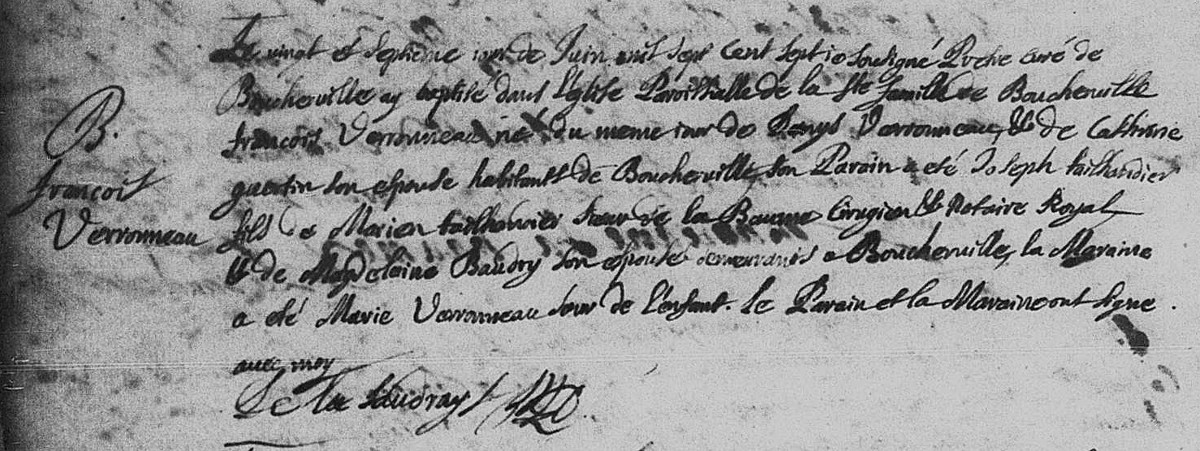 B.
françois
Verronneau
Le vingt et septieme jour de Juin mil sept cent sept ie soussigné Prêtre curé de
Boucherville ay baptisé dans l'Eglise Paroissialle de la Ste famille de Boucherville
françois Verronneau né du meme iour de Denys Verronneau, & de Catherine
guertin son epouse habitants de Boucherville, son Parain a eté Joseph tailhandier
fils de Marien tailhandier sieur de la Baume Cirugien & Notaire Royal
& de Magdelaine Baudry son epouse demeurants a Boucherville, la Maraine
a eté Marie Verronneau sœur de l'enfant. Le Parain et la Maraine ont signe
avec moy